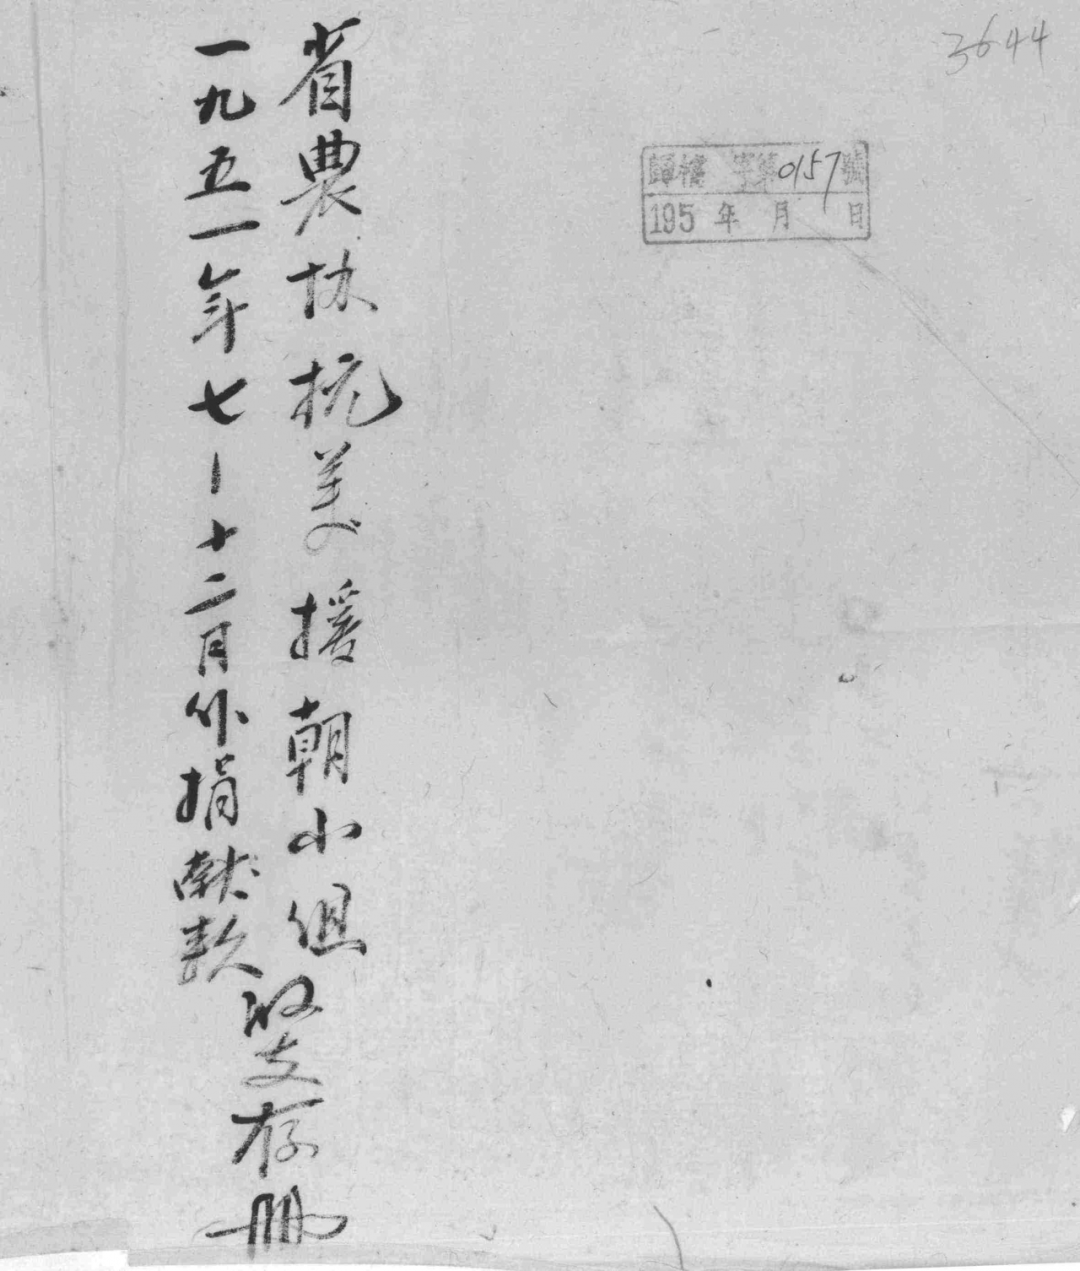 3644
歸檔 字第0157號
195 年 月 日
省農协抗美援朝小组
一九五一年七—十二月份捐献款
收支存册